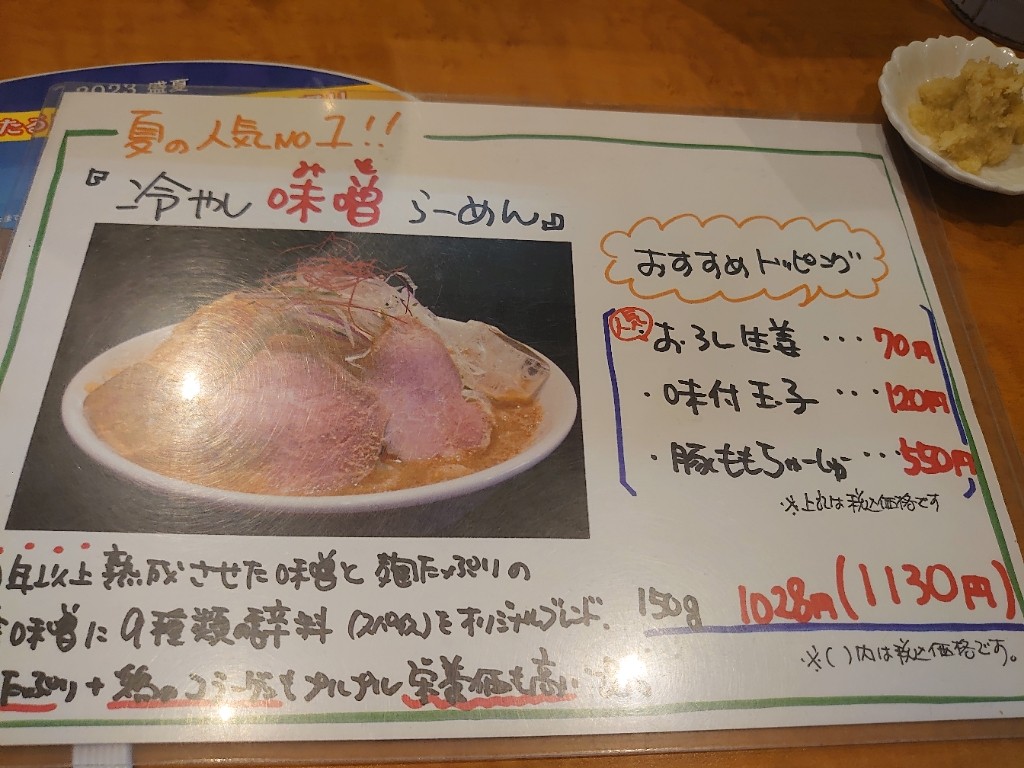 2023 盛夏
夏の人気NO1!!
『冷やし味噌らーめん』
おすすめトッピング
人気
・おろし生姜・・・70円
・味付玉子・・・120円
・豚ももちゃーしゅー・・・550円
※上記は税込価格です
年以上熟成させた味噌と麹たっぷりの
味噌に9種類の香辛料(スパイス)をオリジナルブレンド。
たっぷり+鶏のコラーゲンもプルプル栄養価も高い
150g 1028円(1130円)
※( )内は税込価格です。